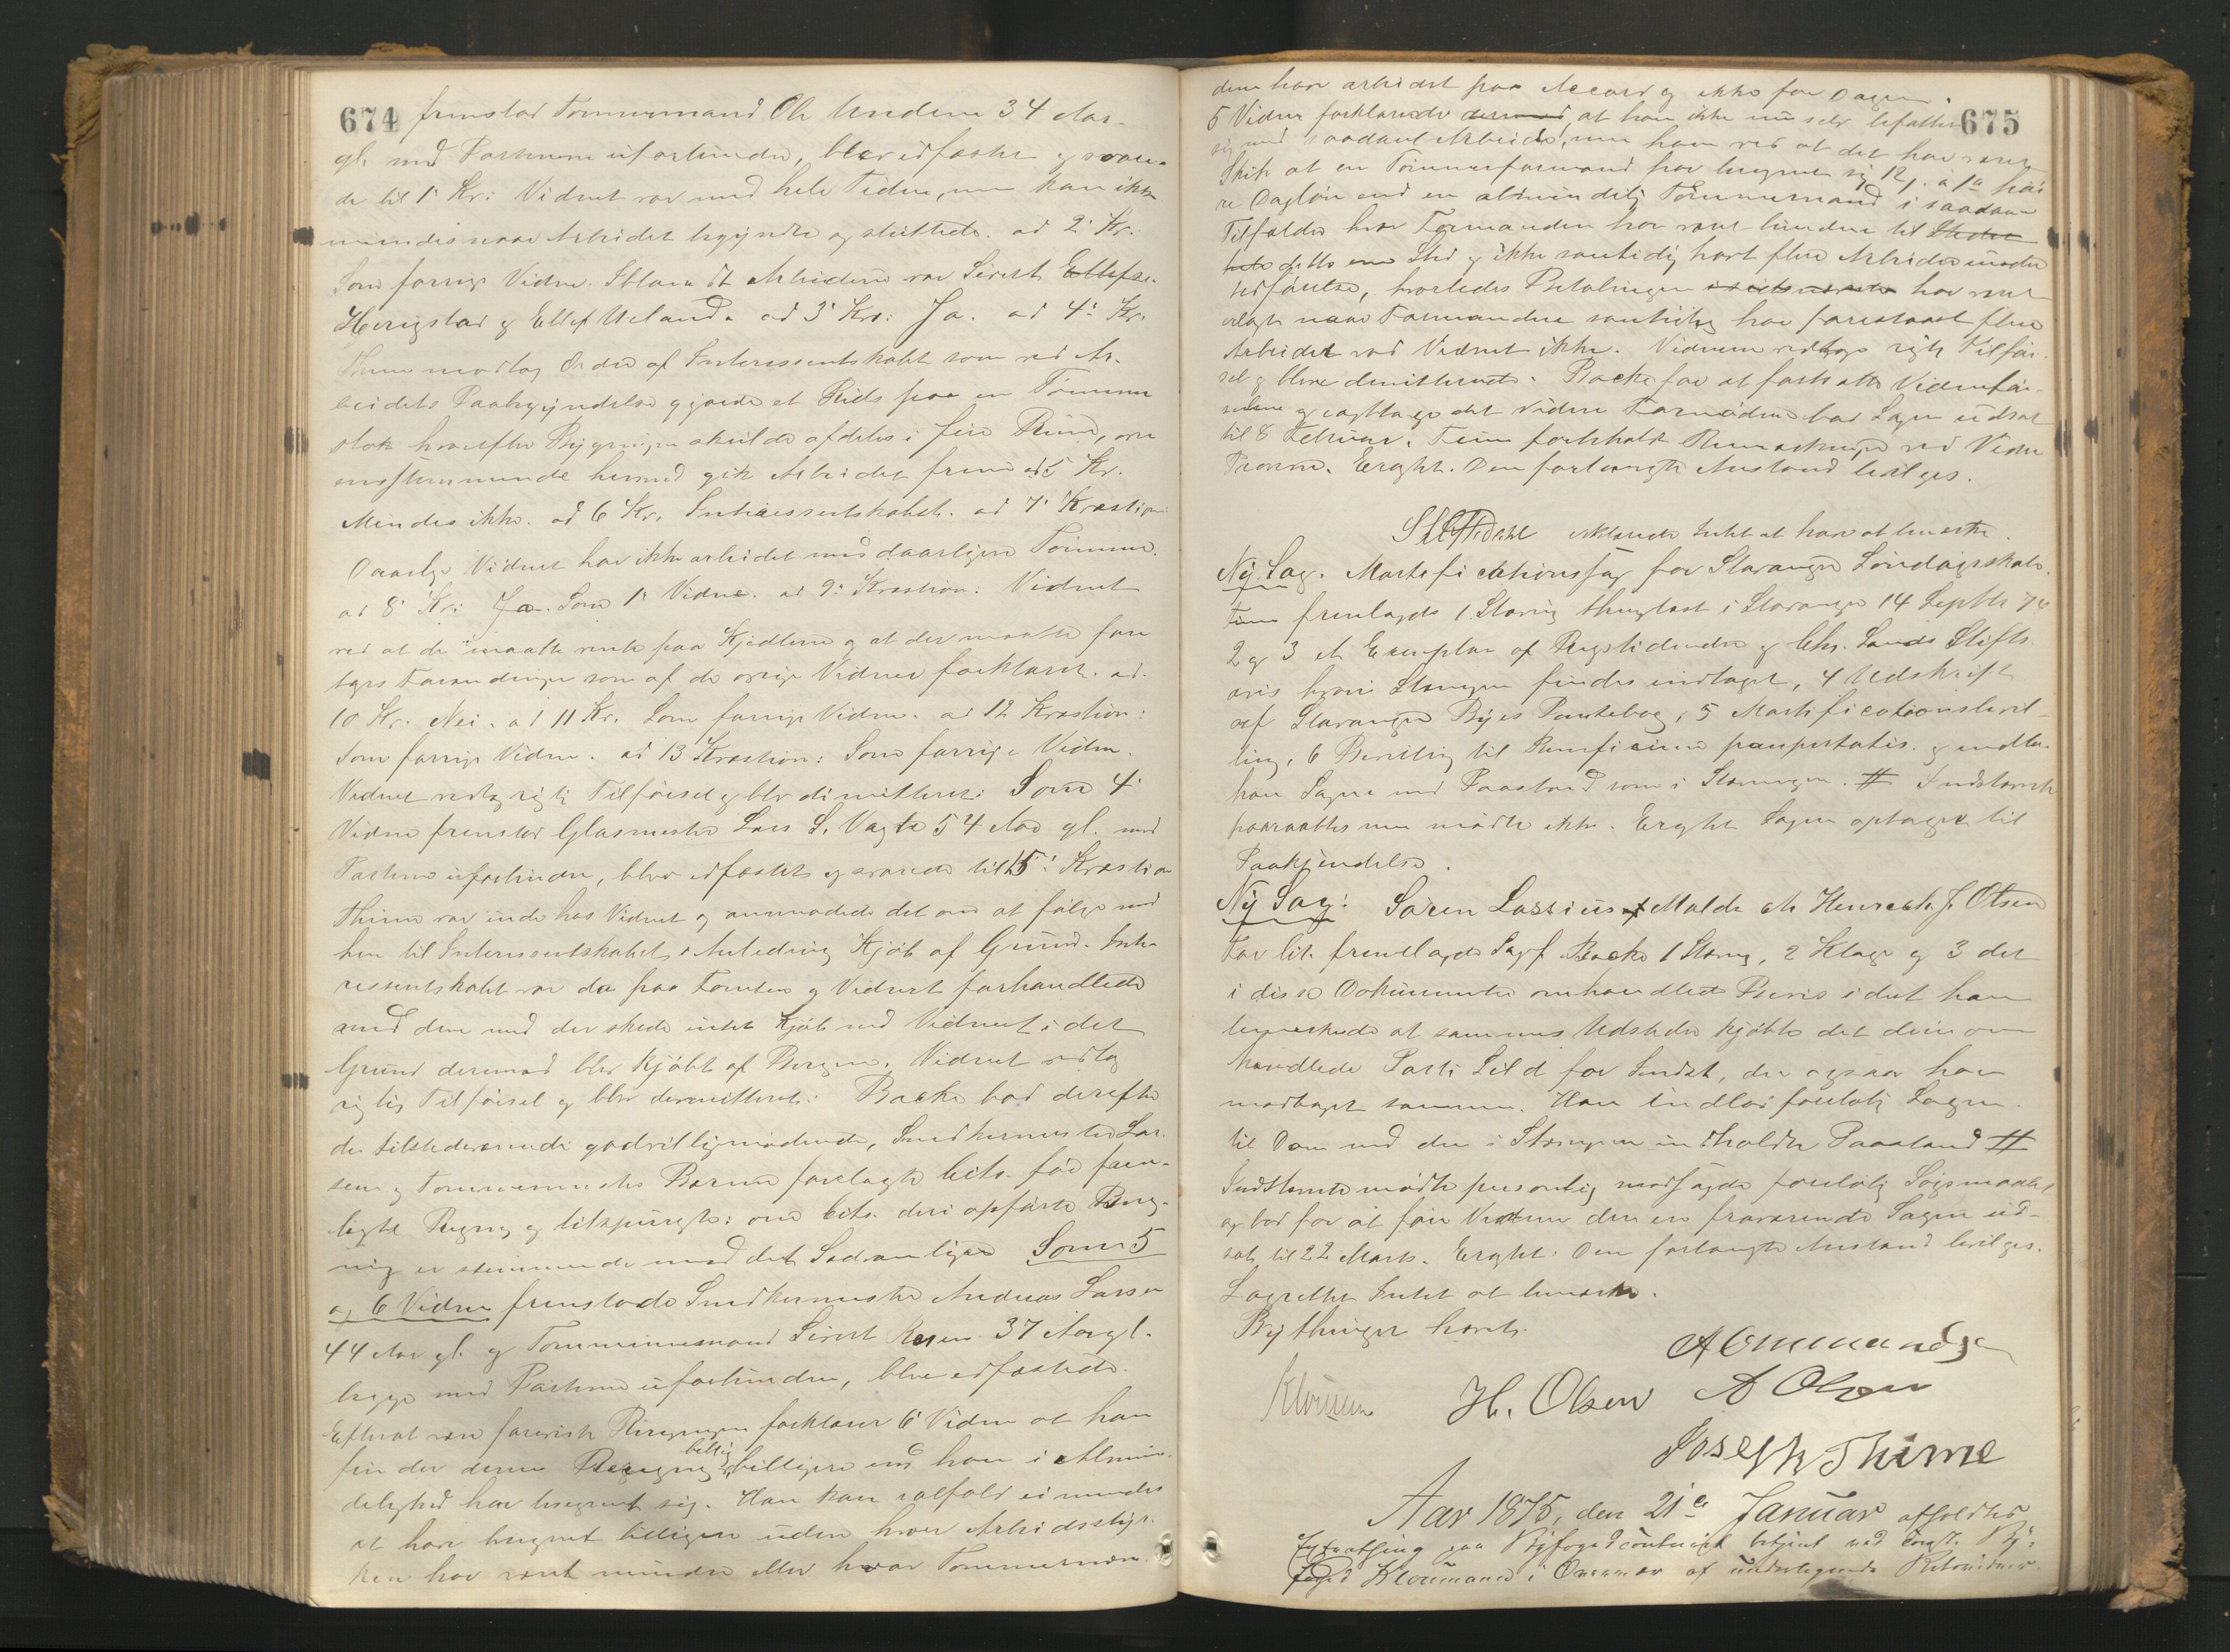 674
fremstod Tømmermand Ole Undem 34 Aar
gl. med Parterne uforbunden, blev edfæstet og svare-
de til 1ste Kr: Vidnet var med hele Tiden, men kan ikke
mindes naar Arbeidet begyndte og sluttede. ad 2' Kr.
Som forrige Vidne. Iblandt Arbeiderne var Sivert Ellefse
Herigstad og Ellef Ueland. ad 3' Kr: Ja. ad 4' Kr.
Thime modtog Ordre af Interessentskabet som ved Ar-
beidets Paabegyndelse gjorde et Rids paa en Tømmer
stok hvorefter Bygningen skulde afdeles i fire Rum, over
ensstemmende hermed gik Arbeidet frem ad 5 Kr.
Mindes ikke. ad 6 Kr. Interessentskabet. ad 7' Kvæstion:
Daarlig. Vidnet har ikke arbeidet med daarligere Tømmer.
ad 8' Kr: Ja. Som 1' Vidne. ad 9' Kvæstion: Vidnet
ved at de maatte vente paa Kjedlerne og at der maatte fore
tages Forandringer som af de øvrige Vidner forklaret. ad
10 Kr. Nei. ad 11 Kr. Som forrige Vidne. ad 12 Kvæstion:
Som forrige Vidne. ad 13 Kvæstion: Som forrige Vidne.
Vidnet vedtog rigtig Tilførsel og blev dimitteret: Som 4'
Vidne fremstod Glasmester Lars L. Vagle 54 Aar gl. med
Parterne uforbunden, blev edfæstet og svarede til 15' Kvæstion
Thime var inde hos Vidnet og anmodede det om at følge med
hen til Interessentskabet i Anledning Kjøb af Grund. Inte-
ressentskabet var da paa Tomten og Vidnet forhandlede
med dem med der skede intet Kjøb med Vidnet i det
Grund derimod blev kjøbt af Bergen. Vidnet vedtog
rigtig Tilførsel og blev demitteret: Backe bad derefter
de tilstedeværende godvilligmødende, Snedkermester Lar-
sen og Tømmermester Bærne forelagte Cits. før frem-
lagte Regning og tilspurgte: om Cits. deri opførte Reg-
ning er stemmende med det Sædvanlige Som 5
og 6 Vidne fremstode Snedkermester Andreas Larsen
44 Aar gl. og Tømmermand Sivert 37 Aar gl.
begge med Parterne uforbunden, bleve edfæstede.
Efterat være forevist Regningen forklarer 6' Vidne at han
finder denne Regning billig billigere end han i Almin
delighed har beregnet sig. Han kan ialfald ei mindes
at have beregnet billigere uden hvor Arbeidsstyr-
ken har været mindre eller hvor Tømmermæn
675
dene har arbeidet paa Accord og ikke for Dagen.
5 Vidne forklarede derimod, at han ikke nu selv befatter
sig med saadant Arbeide, men han ved at det har været
Skik at en Tømmerformand har beregnet sig 12 s. à 1 høi
re Dagløn end en almindelig Tømmermand i saadanne
Tilfælde hvor Formanden har været bunden til Stedet
dette ene Sted og ikke samtidig havt flere Arbeider under
udførelse, hvorledes Betalingen har været
erlagt naar Formanden samtidig har forestaaet flere
Arbeider ved Vidnet ikke. Vidnerne vedtoge rigtig Tilfør-
sel og bleve demitterede. Backe for at fortsætte Vidnefør-
selen og iagttage det videre Fornødne bad Sagen udsat
til 8 Februar. Thime forbeholdt Bemærkninger ved Vidne
Prov. Eragtet. Den forlangte Anstand bevilges.
erklærede Intet at have at bemærke.
Ny Sag. Mortifications Sag for Stavanger Søndagsskole.
fremlagde 1 Stævning thinglæst i Stavanger 14 Septbr 74
2 og 3 et Exemplar af Rigstidende og Chr. Sands Stifts
avis hvori Stævningen findes indtaget, 4 Udskrift
af Stavanger Byes Pantebog, 5 Mortificationsbevil-
ling, 6 Bevilling til Beneficium paupertatis. og indlod
han Sagen med Paastand som i Stævningen. # Indstævnte
paaraabtes men mødte ikke. Eragtet Sagen optages til
Paakjendelse.
Ny Sag: Søren Lassius Malde ctr Henrik J. Olsen
For Cit. fremlagde Sagf Backe 1 Stævng, 2 Klage og 3 det
i disse Dokumenter omhandlede Bevis idet han
bemærkede at sammes Udsteder kjøbte det deri om
handlede Parti Sild for Indst, der ogsaa har
modtaget samme. Han indlod foreløbig Sagen
til Dom med den i Stævningen indholdte Paastand #
Indstævnte mødte personlig modsagde foreløbig Søgsmaalet
og bad for at føre Vidner der er fraværende Sagen ud-
sat til 22 Marts. Eragtet: Den forlangte Anstand bevilges.
Lagrettet Intet at bemærke.
Bythinget hævet.
A Ommundsen
Kloumann H. Olsen A Olsen
Joseph Thime
Aar 1875, den 21de Januar afholdtes
Extrathing paa Byfogedcontoiret betjent ved const. By-
foged Kloumann i Overvær af undertegnede Retsvidner.